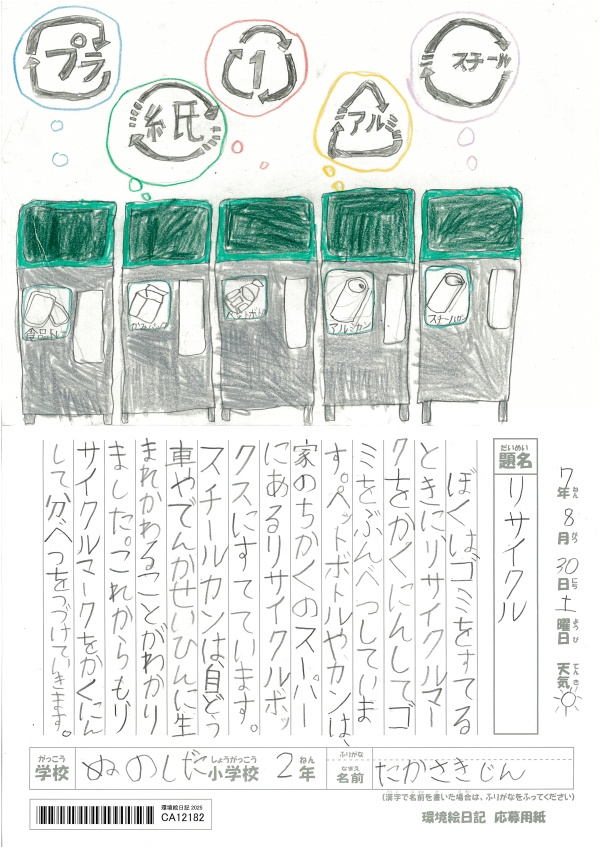 プラ
紙
1
アルミ
スチール
食品トレー
かみパック
ペットボトル
アルミカン
スチールカン
7年8月30日土曜日 天気
ねん がつ にち ようび てんき
だいめい
題名 リサイクル
ぼくはゴミをすてる
ときにリサイクルマー
クをかくにんしてゴ
ミをぶんべつしていま
す。ペットボトルやカンは、
家のちかくのスーパー
にあるリサイクルボッ
クスにすてています。
スチールカンは、自どう
車やでんかせいひんに生
まれかわることがわかり
ました。これからもリ
サイクルマークをかくにん
して分べつをつづけていきます。
がっこう しょうがっこう ねん
学校 ぬのしだ 小学校 2年
ふりがな
なまえ
名前 たかさきじん
(漢字で名前を書いた場合は、ふりがなをふってください)
環境絵日記 2025
CA12182
環境絵日記 応募用紙